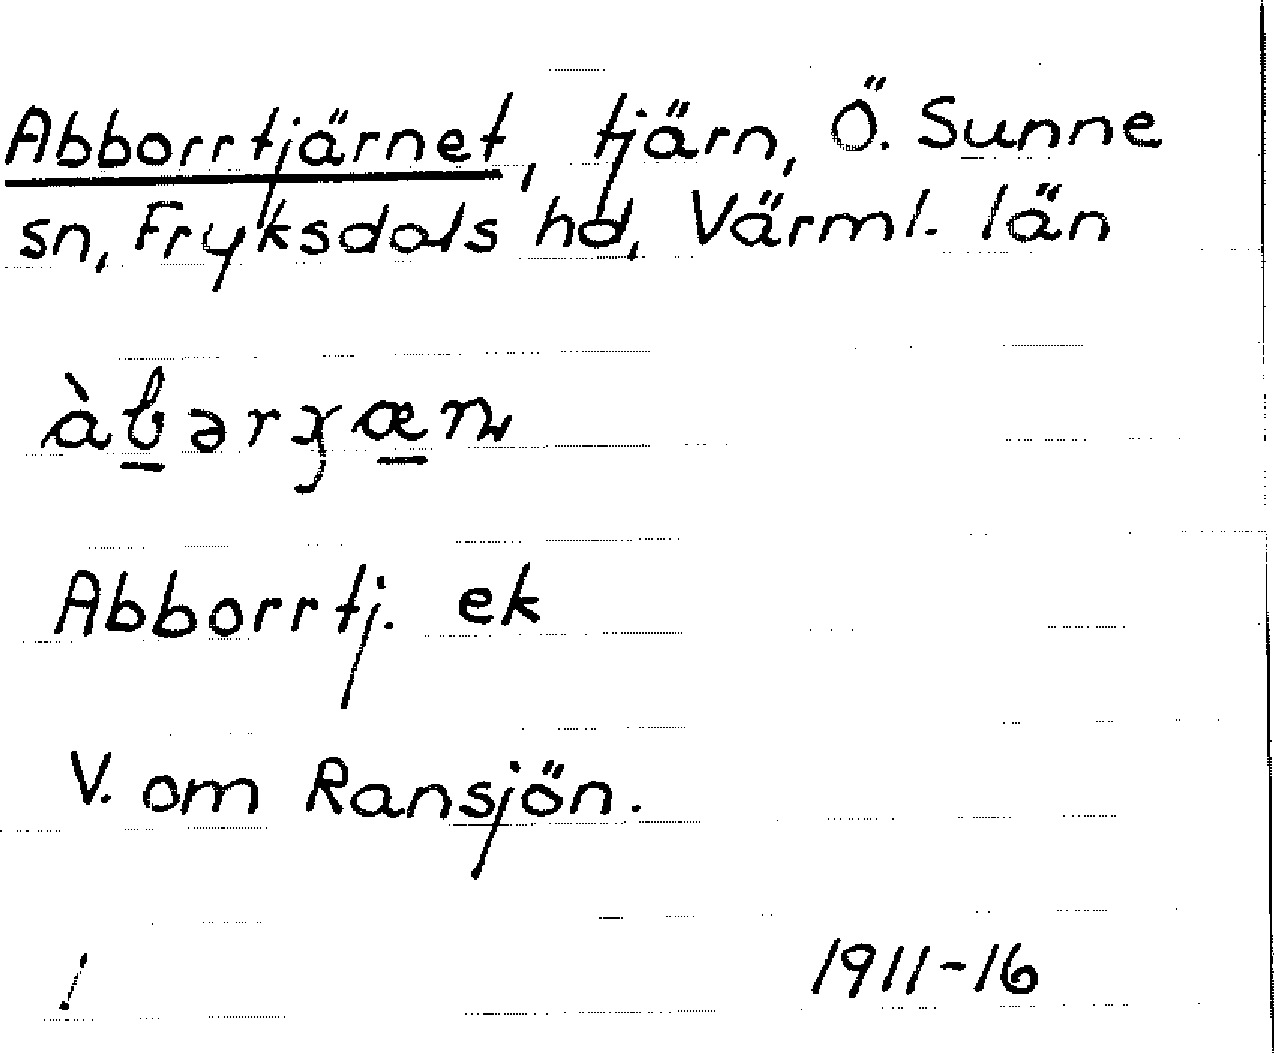 Abborrtjärnet, tjärn, Ö. Sunne
sn, Fryksdals hd, Värml. län
Abborrtj. ek
V. om Ransjön.
1911-16